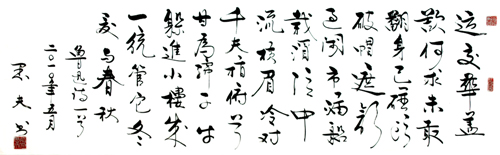 运交華盖
欲何求未敢
翻身已碰头
破帽遮颜
过闹市漏船
载酒泛中
流横眉冷对
千夫指俯首
甘為孺子牛
躲進小樓成
一统管他冬
夏与春秋
鲁迅诗一首
二〇一〇年五月
夫书